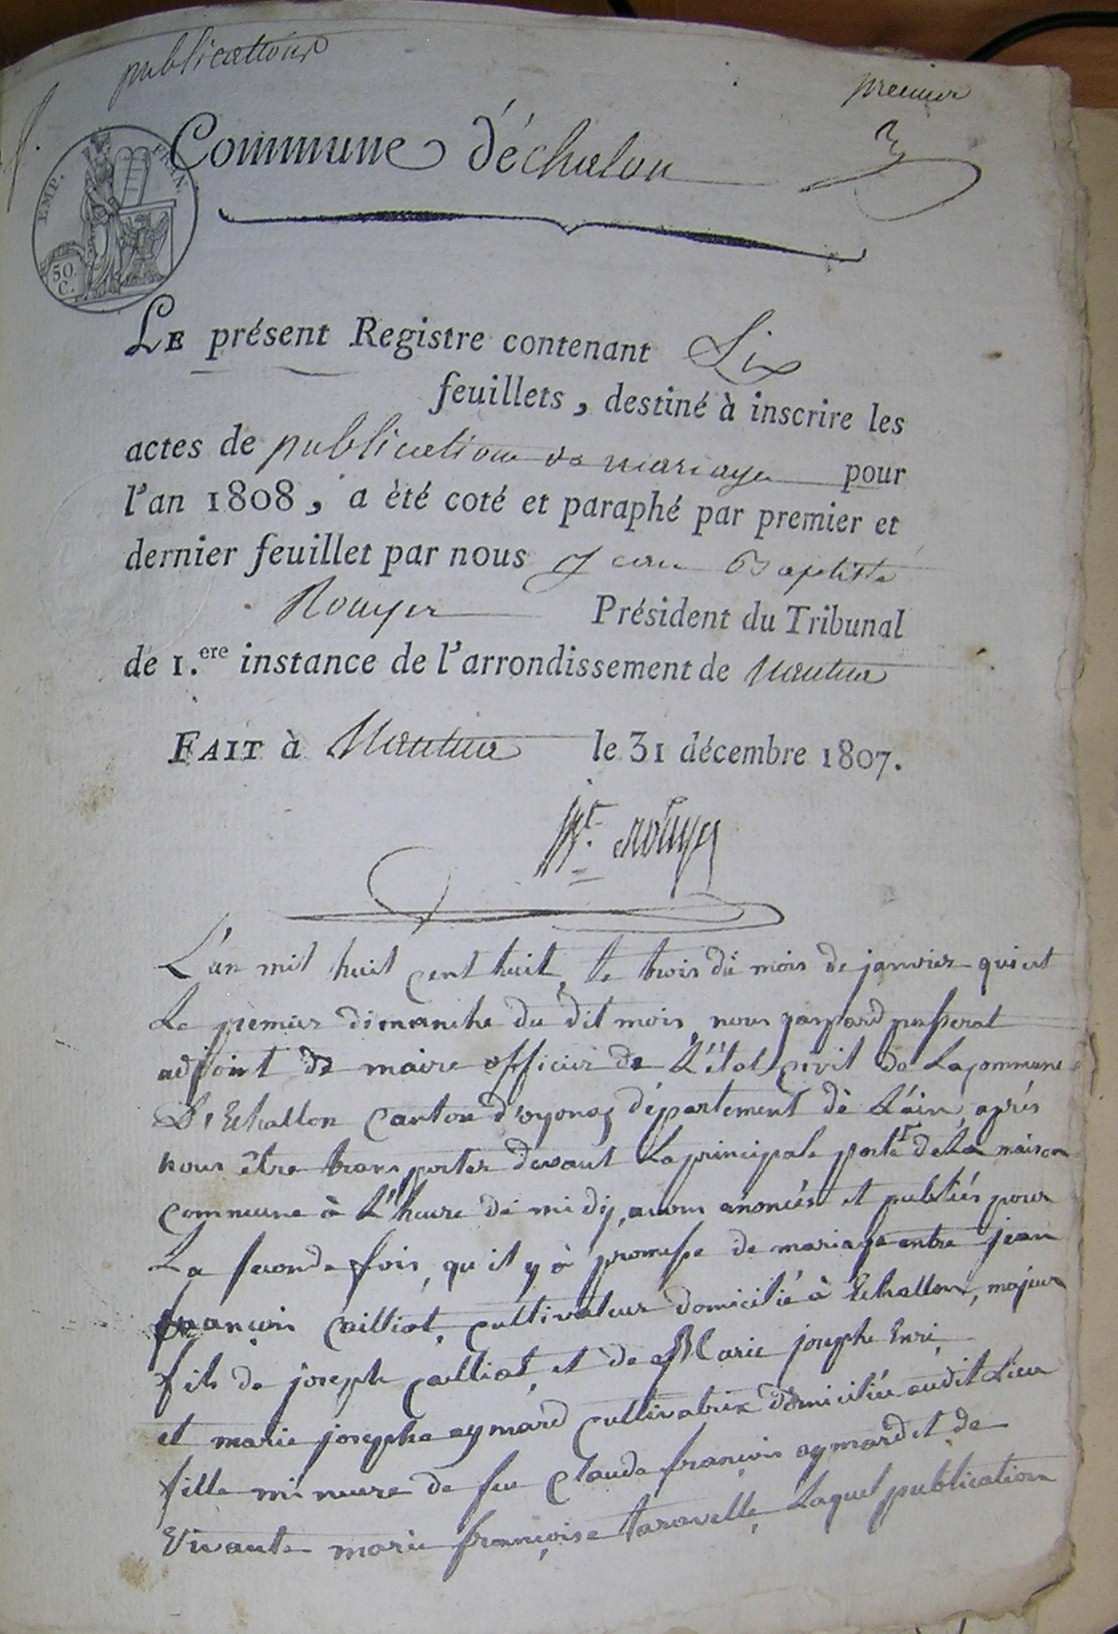 publications
premier
EMP. FRAN.
50 C.
Commune d'échalon
LE présent Registre contenant Six
feuillets, destiné à inscrire les
actes de publication de mariage pour
l'an 1808, a été coté et paraphé par premier et
dernier feuillet par nous Jean Baptiste
Rouyer Président du Tribunal
de 1.ere instance de l'arrondissement de Nantua
FAIT à Nantua le 31 décembre 1807.
Rouyer
L'an mil huit cent huit, le trois du mois de janvier qui est
Le premier dimanche du dit mois, nous gaspard passerat
adjoint de maire officier de L'état civil de La commune
D'Echallon Canton d'oyonaz département de L'ain, aprés
nous être transporter devant La principale porte de La maison
commune à L'heure de midy, avons anoncés et publiés pour
La seconde fois, qu'il y à promesse de mariage entre jean
françois Cailliat, cultivateur domicilié à Echallon, majeur
fils de joseph Cailliat, et de Marie josephe Enri
et marie josephe aymard cultivatrix domiciliée audit Lieu
fille mineure de feu Claude françois aymard et de
Vivante marie françoise taravelle Laquel publication